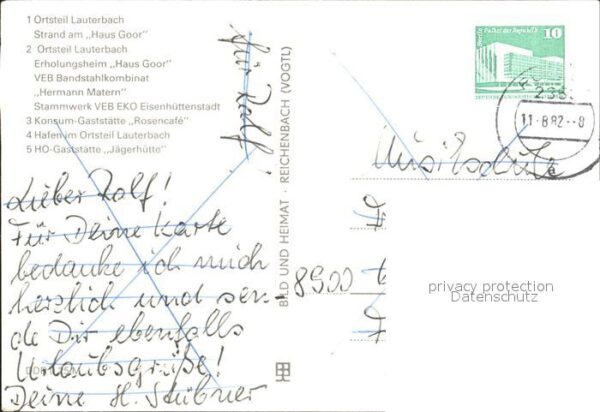 1 Ortsteil Lauterbach
Strand am „Haus Goor"
2 Ortsteil Lauterbach
Erholungsheim „Haus Goor"
VEB Bandstahlkombinat
„Hermann Matern"
Stammwerk VEB EKO Eisenhüttenstadt
3 Konsum-Gaststätte „Rosencafé"
4 Hafen im Ortsteil Lauterbach
5 HO-Gaststätte „Jägerhütte"
Lieber Rolf!
Für Deine Karte
bedanke ich mich
herzlich und sen-
de Dir ebenfalls
Urlaubsgrüße!
Deine H. Stübner
für Rolf!
BILD UND HEIMAT · REICHENBACH (VOGTL)
DDR
Palast der Republik
10
11.-8.82.--8
Musikschule
8900
privacy protection
Datenschutz